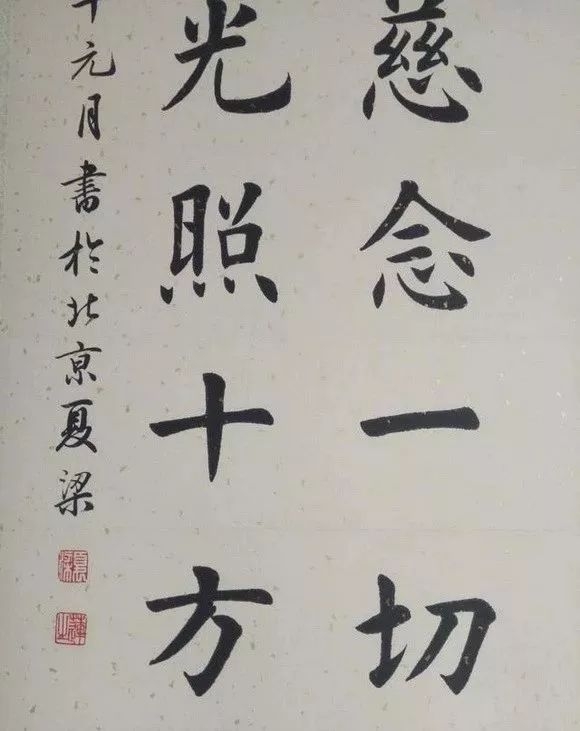 慈念一切
光照十方
年元月書於北京夏梁